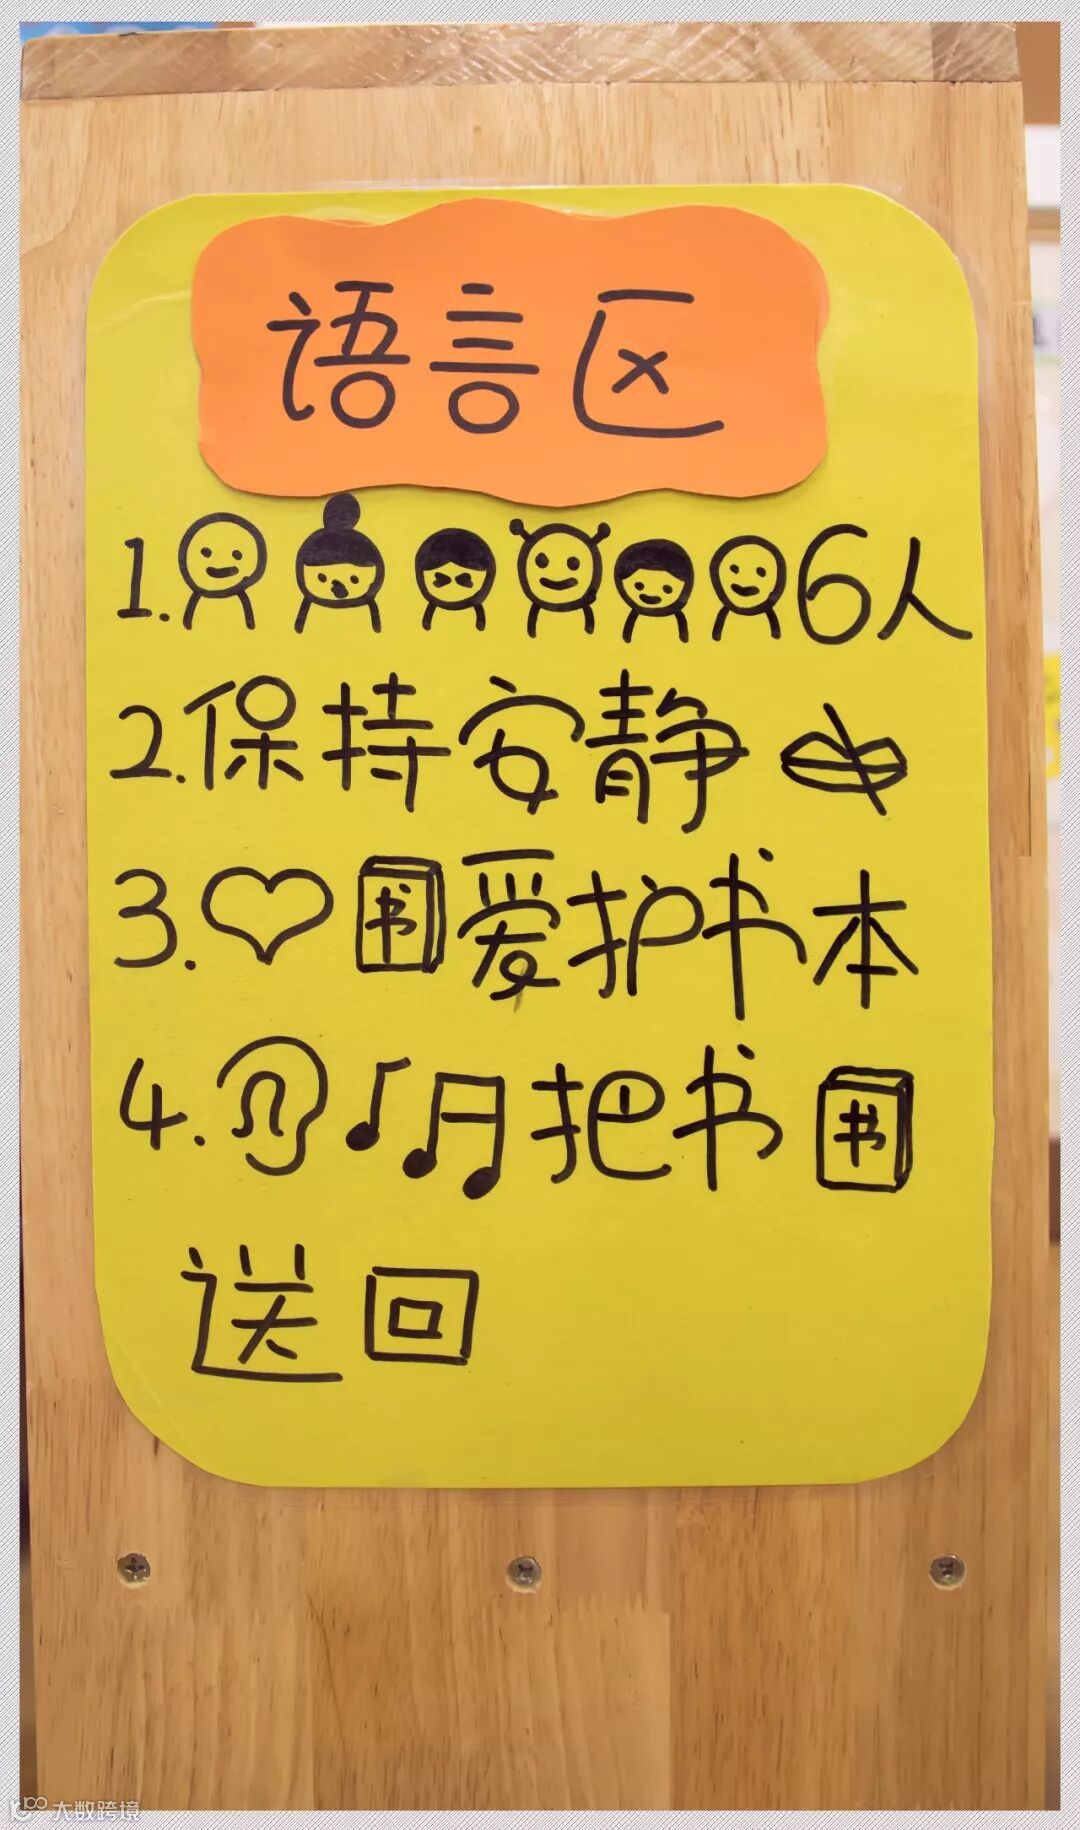 语言区
1.6人
2.保持安静
3.书爱护书本
4.把书书
送回
大数跨境